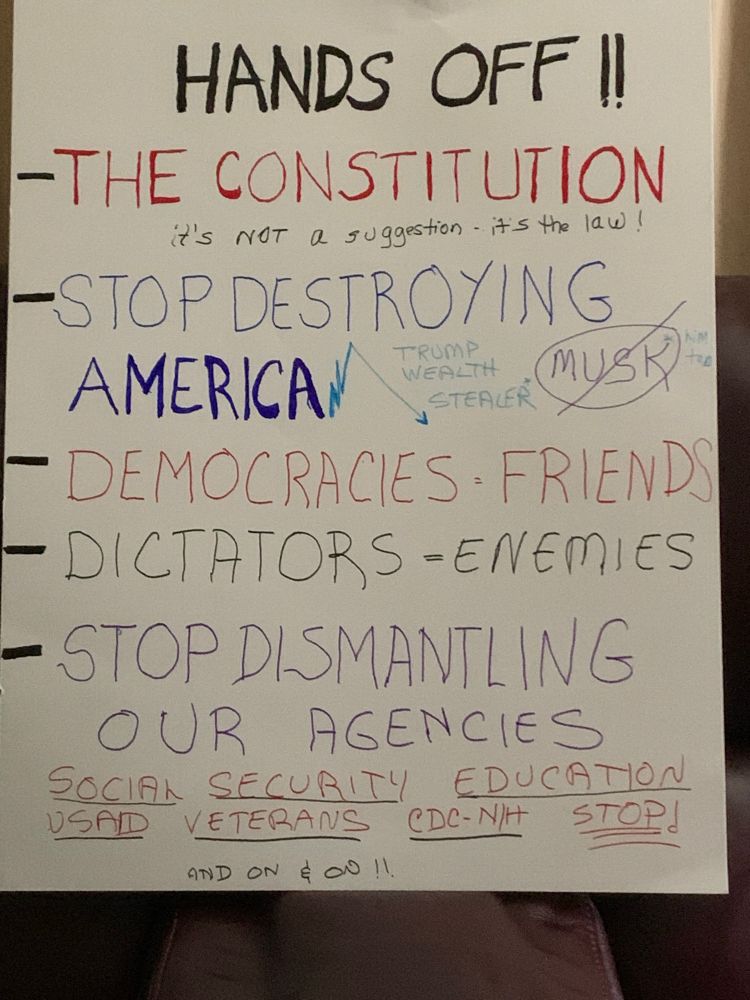 HANDS OFF!!
- THE CONSTITUTION
it's NOT a suggestion - it's the law!
- STOP DESTROYING
AMERICA
TRUMP
WEALTH
STEALER
MUSK
him
too
- DEMOCRACIES = FRIENDS
- DICTATORS = ENEMIES
- STOP DISMANTLING
OUR AGENCIES
SOCIAL SECURITY EDUCATION
USAID VETERANS CDC-NIH STOP!
AND ON & ON !!